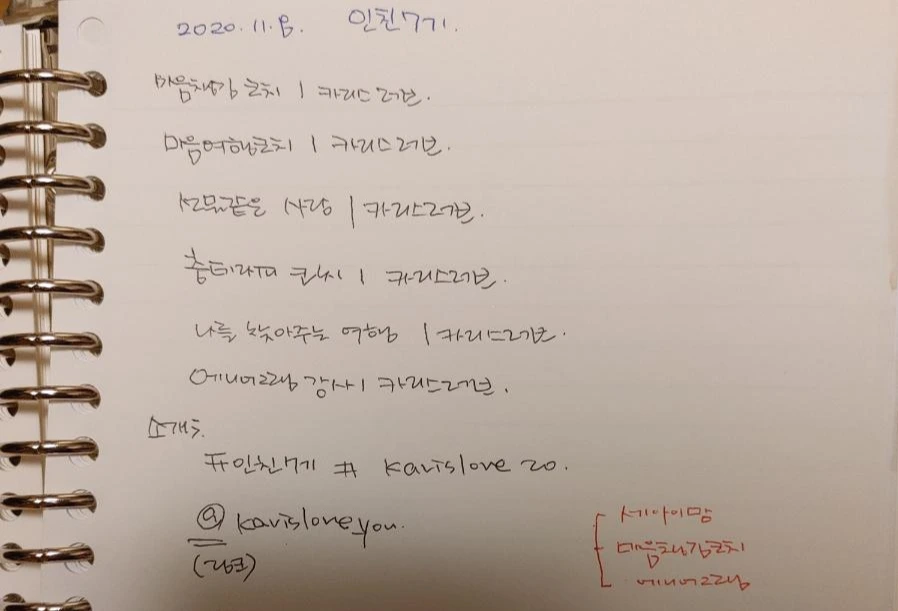 2020.11.8. 인친7기.
마음챙김 코치 | 카리스러브.
마음여행코치 | 카리스러브.
선물같은 사람 | 카리스러브.
춤테라피 코치 | 카리스러브.
나를 찾아주는 여행 | 카리스러브.
에니어그램 강사 | 카리스러브.
소개글.
#인친7기 # karislove 20.
@ karisloveyou.
(링크)
세아이맘
마음챙김코치
에니어그램